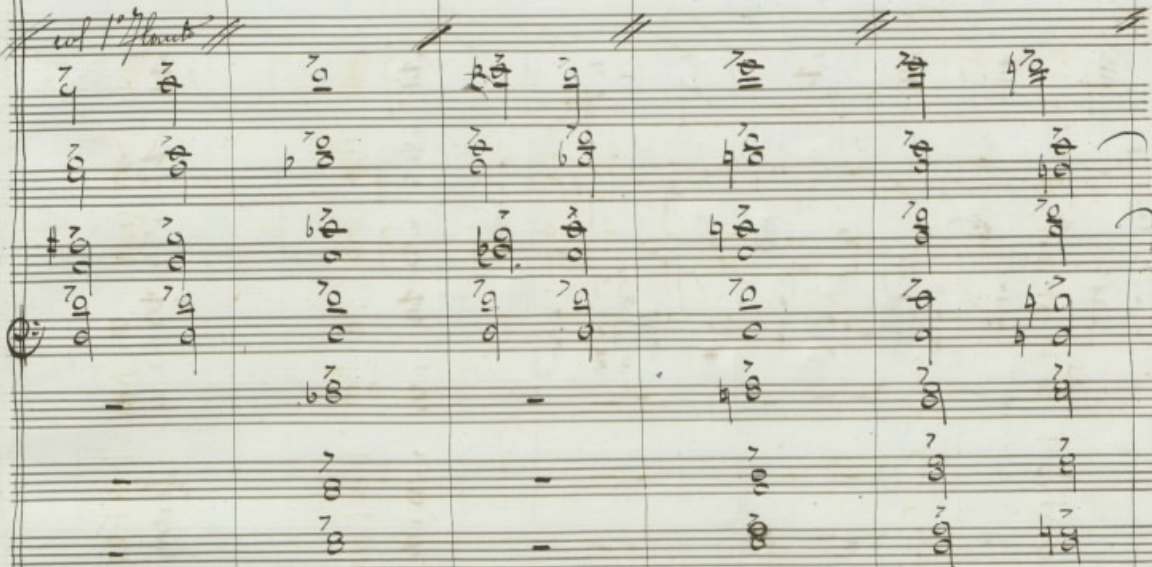 col 1º Flauto